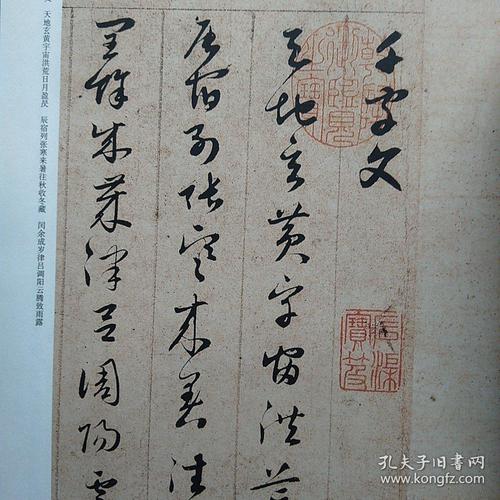 千字文
天地玄黄宇宙洪荒
辰宿列张寒来暑往
闰馀成岁律吕调阳云
天地玄黄宇宙洪荒日月盈昃 辰宿列张寒来暑往秋收冬藏 闰余成岁律吕调阳云腾致雨露
孔夫子旧书网